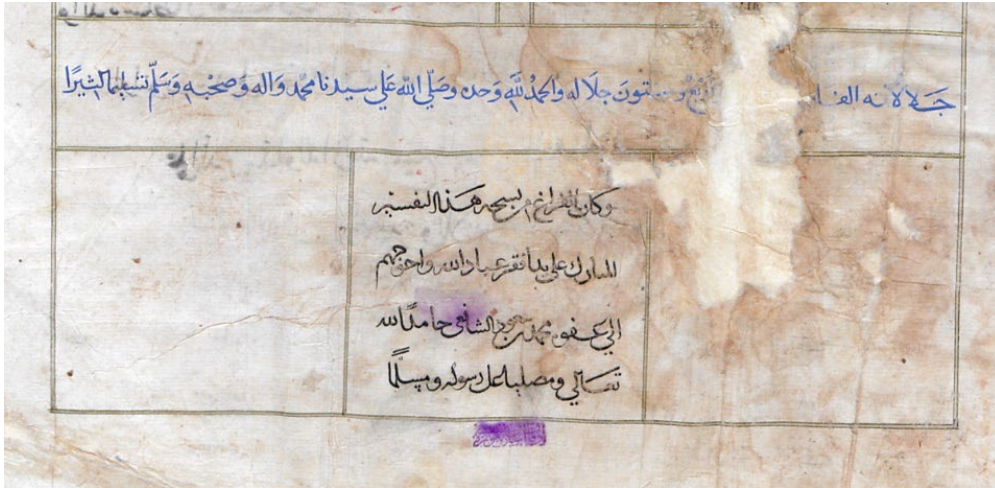 جلالاته الف وستون جلاله والحمد لله وحده وصلى الله على سيدنا محمد واله وصحبه وسلم تسليما كثيرا
وكان الفراغ من نسخه هذا التفسير
المبارك على يد افقر عباد الله واحوجهم
الى عفوه محمد بن الشافعي حامدا لله
تعالى ومصليا على رسوله ومسلما